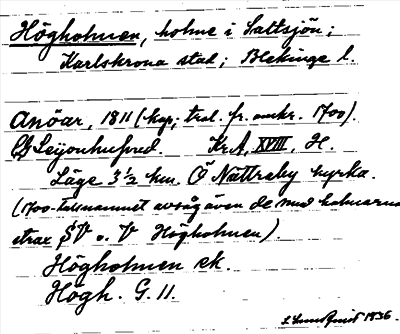 Högholmen, holme i Saltsjön;
Karlskrona stad; Blekinge l.
Anöar, 1811 (kop; trol. fr. omkr. 1700).
CG Leijonhufvud. Kr.A, XVIII, H.
Läge 3 ½ km. Ö Nättraby kyrka.
(1700-talsnamnet avsåg även de små holmarna
strax SV o. V Högholmen).
Högholmen ek.
Högh. G. 11.
Lundquist 1936.